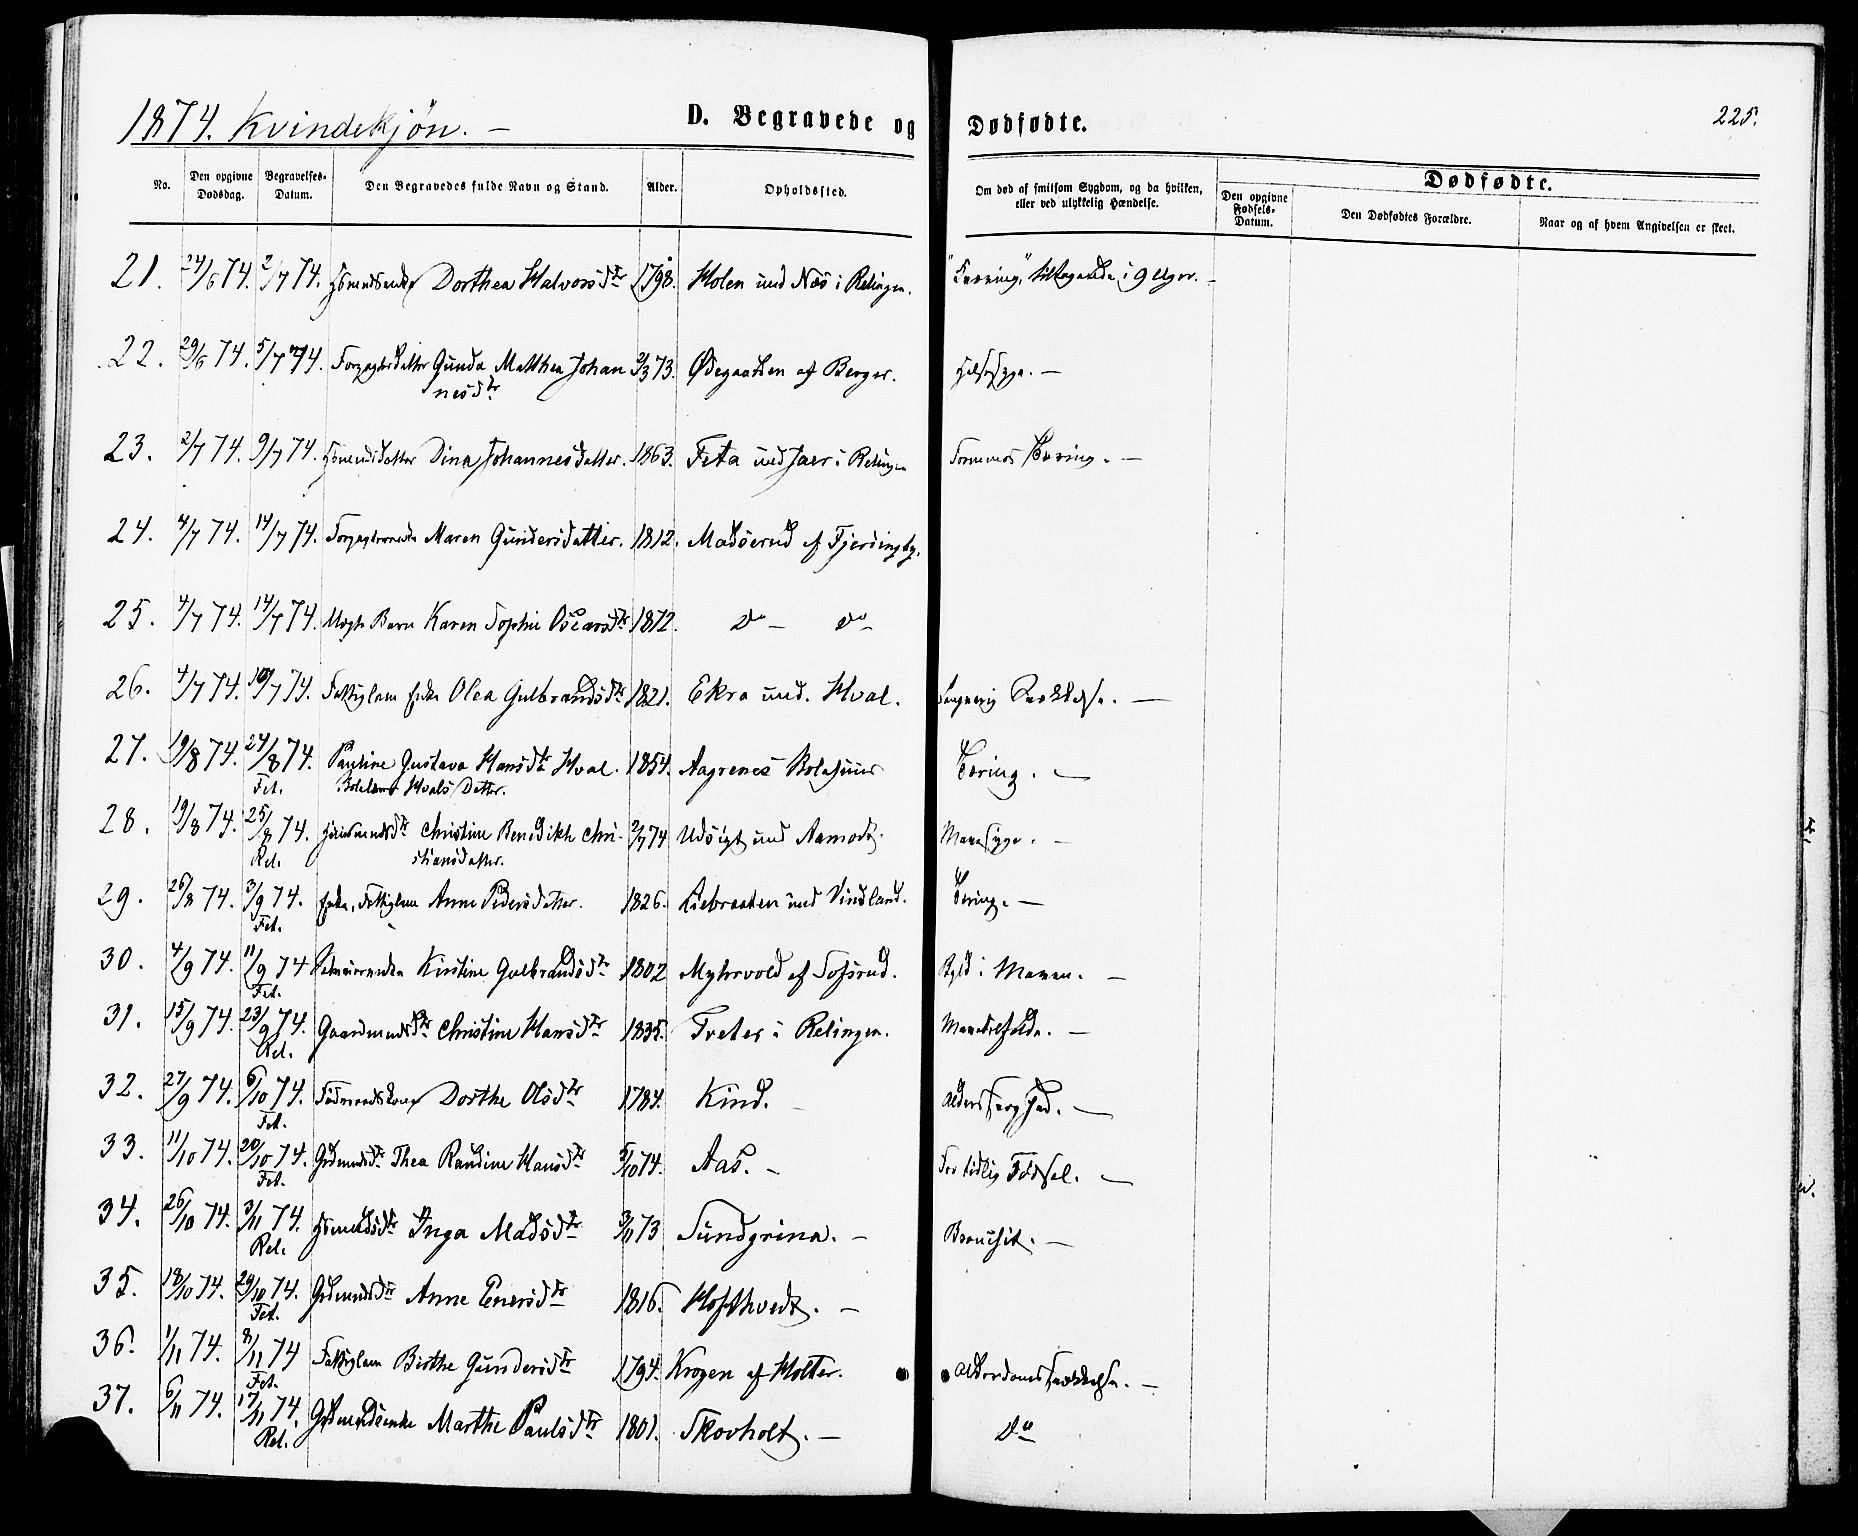 1874. Kvindekjön. —
D. Begravede og Dødfødte.
225.
No. Den opgivne Dødsdag. Begravelses-Datum. Den Begravedes fulde Navn og Stand. Alder. Opholdssted. Om død af smitsom Sygdom, og da hvilken, eller ved ulykkelig Hændelse. Dødfødte. Den opgivne Fødsels-Datum. Den Dødfødtes Forældre. Naar og af hvem Angivelsen er skeet.
21. 24/6 74. 2/7 74. Dorthea Halvorsdtr 1798. Holen und Næs i Relingen. "Tæring," tiltagende i 9 Uger. —
22. 29/6 74. 5/7 74. Forpagterdatter Gunda Matthea Johan 2/3 73. Ødegaarden af Berger. Halssyge. —
nesdtr
23. 2/7 74. 9/7 74. Hsmendsdatter Dina Johannesdatter. 1863. Feta und Jaer i Relingen Tæring. —
24. 4/7 74. 14/7 74. Maren Gundersdatter. 1812. Madserud af Fjerdingby.
25. 4/7 74. 14/7 74. Uægte Barn Karen Sophie Oscarsdtr 1872. do — do
26. 4/7 74. 10/7 74. Fattiglem Enke Olea Gulbrandsdtr 1821. Ekra und. Hval. —
27. 19/8 74. 24/8 74. Pauline Gustava Hansdtr Hval. 1854. Aagrenes Tæring. —
Fet. Hvals Datter.
28. 19/8 74. 25/8 74. Husmandsdtr Christine Benedikte Chri- 2/7 74 Udsigt und Aamodt. Mavesyge. —
Rel. stiansdatter.
29. 26/8 74. 3/9 74. Enke, Fattiglem Anne Pedersdatter. 1826. Liebraaten und Vindland. Tæring. —
Fet.
30. 4/9 74. 11/9 74 Kirstine Gulbrandsdtr 1802 Myhrvold af Tofsrud. Byld i Maven. —
Fet.
31. 15/9 74. 23/9 74. Gaardmandsdtr Christine Hansdtr 1835. Tveter i Relingen. —
Rel.
32. 27/9 74. 6/10 74. Föderaadskone Dorthe Olsdtr 1784. Kind. — Alderssvaghed. —
Fet.
33. 11/10 74. 20/10 74. Grdmandsdtr Thea Randine Hansdtr 5/10 74. Aas. — For tidlig Födsel. —
Fet.
34. 26/10 74. 3/11 74. Hsmandsdtr Inga Madsdtr 3/11 73 Sundgrina. — Bronchit. —
Rel.
35. 18/10 74. 29/10 74. Grdmandsdtr Anne Enersdtr 1816. Hofthvedt. —
Fet.
36. 1/11 74. 8/11 74 Fattiglem Birthe Gundersdtr 1794. Krogen af Holter. Alderdomssvækkelse. —
Fet.
37. 6/11 74. 17/11 74. Grdmandsenke Marthe Paulsdtr 1801. Skovholt. — do
Rel.